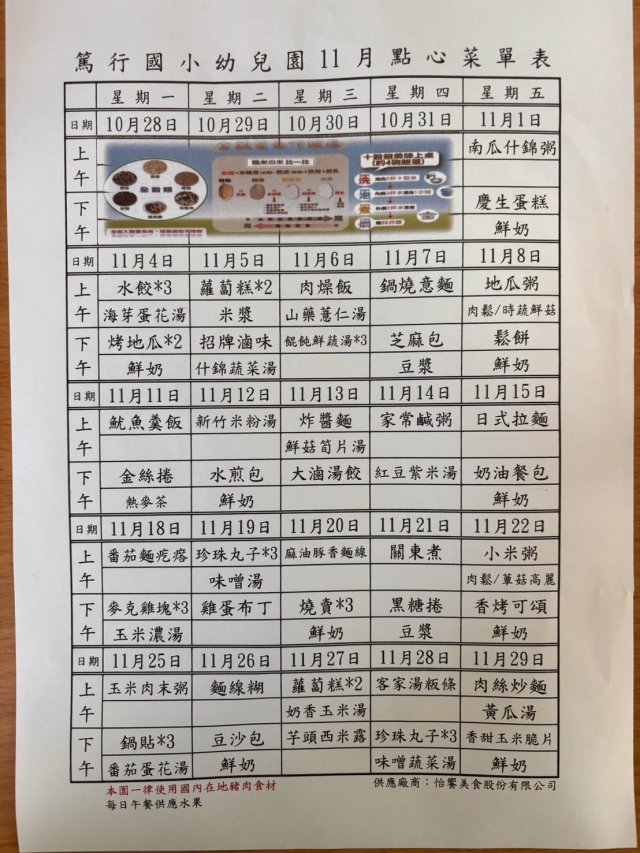 篤行國小幼兒園11月點心菜單表
星期一 星期二 星期三 星期四 星期五
日期 10月28日 10月29日 10月30日 10月31日 11月1日
上午 南瓜什錦粥
全穀類
糙米白米 比一比
十穀飯美味上桌
(約4碗飯量)
洗
泡
煮
燜
高 低 高
下午 慶生蛋糕
鮮奶
日期 11月4日 11月5日 11月6日 11月7日 11月8日
上午 水餃*3 蘿蔔糕*2 肉燥飯 鍋燒意麵 地瓜粥
海芽蛋花湯 米漿 山藥薏仁湯 肉鬆/時蔬鮮菇
下午 烤地瓜*2 招牌滷味 餛飩鮮蔬湯*3 芝麻包 鬆餅
鮮奶 什錦蔬菜湯 豆漿 鮮奶
日期 11月11日 11月12日 11月13日 11月14日 11月15日
上午 魷魚羹飯 新竹米粉湯 炸醬麵 家常鹹粥 日式拉麵
鮮菇筍片湯
下午 金絲捲 水煎包 大滷湯餃 紅豆紫米湯 奶油餐包
熱麥茶 鮮奶 鮮奶
日期 11月18日 11月19日 11月20日 11月21日 11月22日
上午 番茄麵疙瘩 珍珠丸子*3 麻油豚香麵線 關東煮 小米粥
味噌湯 肉鬆/蕈菇高麗
下午 麥克雞塊*3 雞蛋布丁 燒賣*3 黑糖捲 香烤可頌
玉米濃湯 鮮奶 豆漿 鮮奶
日期 11月25日 11月26日 11月27日 11月28日 11月29日
上午 玉米肉末粥 麵線糊 蘿蔔糕*2 客家湯粄條 肉絲炒麵
奶香玉米湯 黃瓜湯
下午 鍋貼*3 豆沙包 芋頭西米露 珍珠丸子*3 香甜玉米脆片
番茄蛋花湯 鮮奶 味噌蔬菜湯 鮮奶
本園一律使用國內在地豬肉食材 供應廠商：怡饗美食股份有限公司
每日午餐供應水果